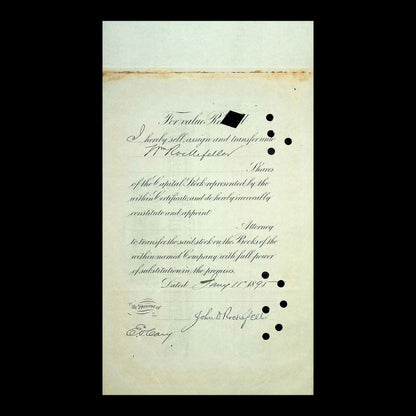 For value Re
I hereby sell, assign and transfer unto
Wm Rockefeller
Shares
of the Capital Stock represented by the
within Certificate and do hereby irrevocably
constitute and appoint
Attorney
to transfer the said stock on the Books of the
within named Company with full power
of substitution in the premises.
Dated 11th 1895
In presence of
John D Rockefeller